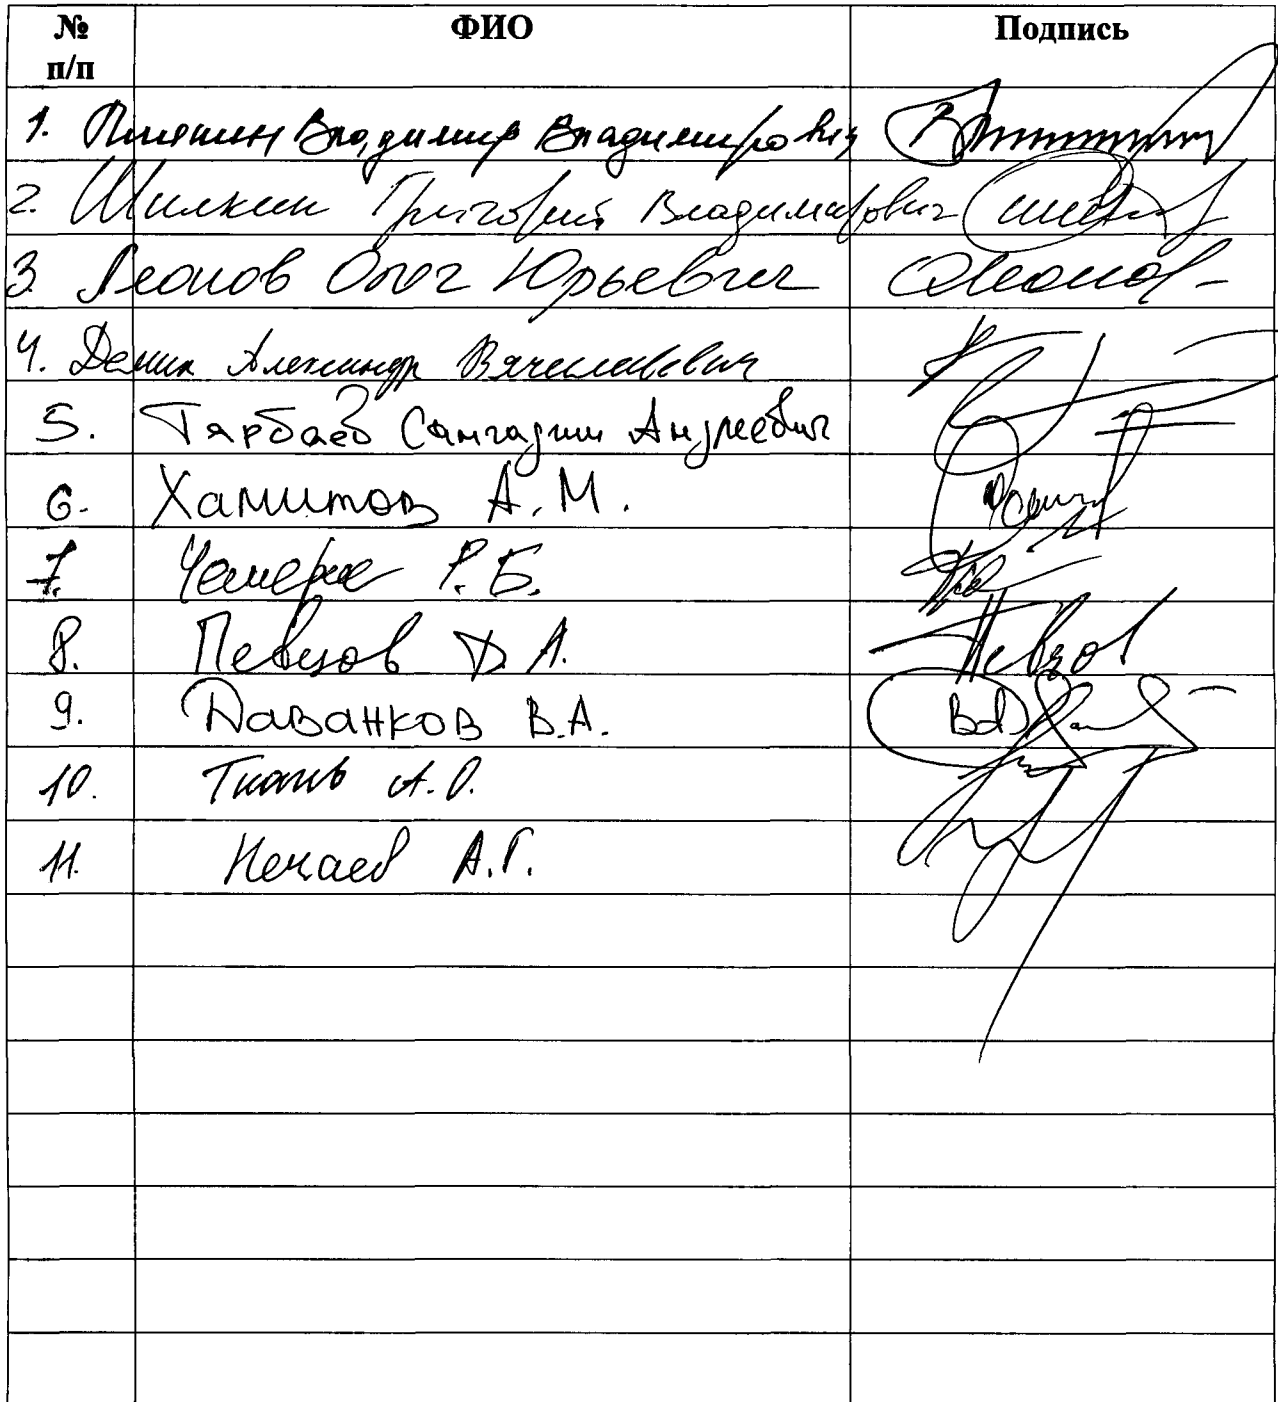 № п/п ФИО Подпись
1. Плякин Владимир Владимирович
2. Шилкин Григорий Владимирович
3. Леонов Олег Юрьевич Леонов
4. Демин Александр Вячеславович
5. Тарбаев Сангаджи Андреевич
6. Хамитов А.М.
7. Чемерис Р.Б.
8. Певцов Д.А. Певцов
9. Даванков В.А.
10. Ткачёв А.О.
11. Нечаев А.Г.